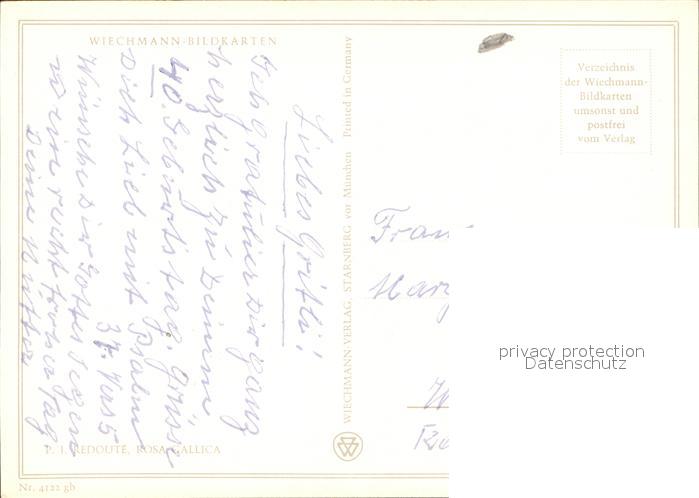 WIECHMANN-BILDKARTEN
Liebes Gritli!
Ich gratulier Dir ganz
herzlich zu Deinem
40. Geburtstag. Grüsse
Dich lieb mit Psalm
37. Vers 5
Wünsche Dir Gottes Segen
u. ein recht froher Tag
Deine
P. J. REDOUTÉ, ROSA GALLICA
Nr. 4122 gb
WIECHMANN VERLAG, STARNBERG vor München Printed in Germany
Verzeichnis
der Wiechmann-
Bildkarten
umsonst und
postfrei
vom Verlag
Frau
privacy protection
Datenschutz